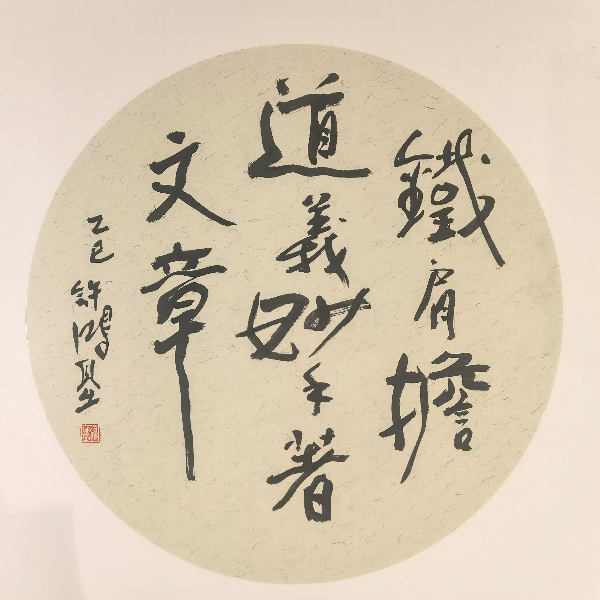 鐵肩擔
道義妙手著
文章
乙巳 許鴻基